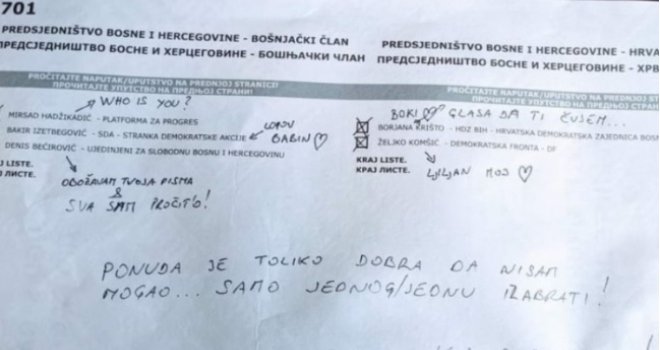 701
PREDSJEDNIŠTVO BOSNE I HERCEGOVINE - BOŠNJAČKI ČLAN
ПРЕДСЈЕДНИШТВО БОСНЕ И ХЕРЦЕГОВИНЕ - БОШЊАЧКИ ЧЛАН
PROČITAJTE NAPUTAK/UPUTSTVO NA PREDNJOJ STRANICI!
ПРОЧИТАЈТЕ УПУТСТВО НА ПРЕДЊОЈ СТРАНИ!
WHO IS YOU?
MIRSAD HADŽIKADIĆ - PLATFORMA ZA PROGRES
BAKIR IZETBEGOVIĆ - SDA - STRANKA DEMOKRATSKE AKCIJE
BABIN
DENIS BEĆIROVIĆ - UJEDINJENI ZA SLOBODNU BOSNU I HERCEGOVINU
LISTE.
ЛИСТЕ.
OBOŽAVAM TVOJA PISMA
&
SVA SAM PROČIT'O!
PREDSJEDNIŠTVO BOSNE I HERCEGOVINE - HRVA
ПРЕДСЈЕДНИШТВО БОСНЕ И ХЕРЦЕГОВИНЕ - ХРВ
PROČITAJTE NAPUTAK/UPUTSTVO NA PREDNJOJ
ПРОЧИТАЈТЕ УПУТСТВО НА ПРЕДЊОЈ
BOKI GLASA DA TI ČUJEM...
BORJANA KRIŠTO - HDZ BIH - HRVATSKA DEMOKRATSKA ZAJEDNICA BOSN
ŽELJKO KOMŠIĆ - DEMOKRATSKA FRONTA - DF
KRAJ LISTE.
КРАЈ ЛИСТЕ.
LJILJAN MOJ
PONUDA JE TOLIKO DOBRA DA NISAM
MOGAO... SAMO JEDNOG/JEDNU IZABRATI!